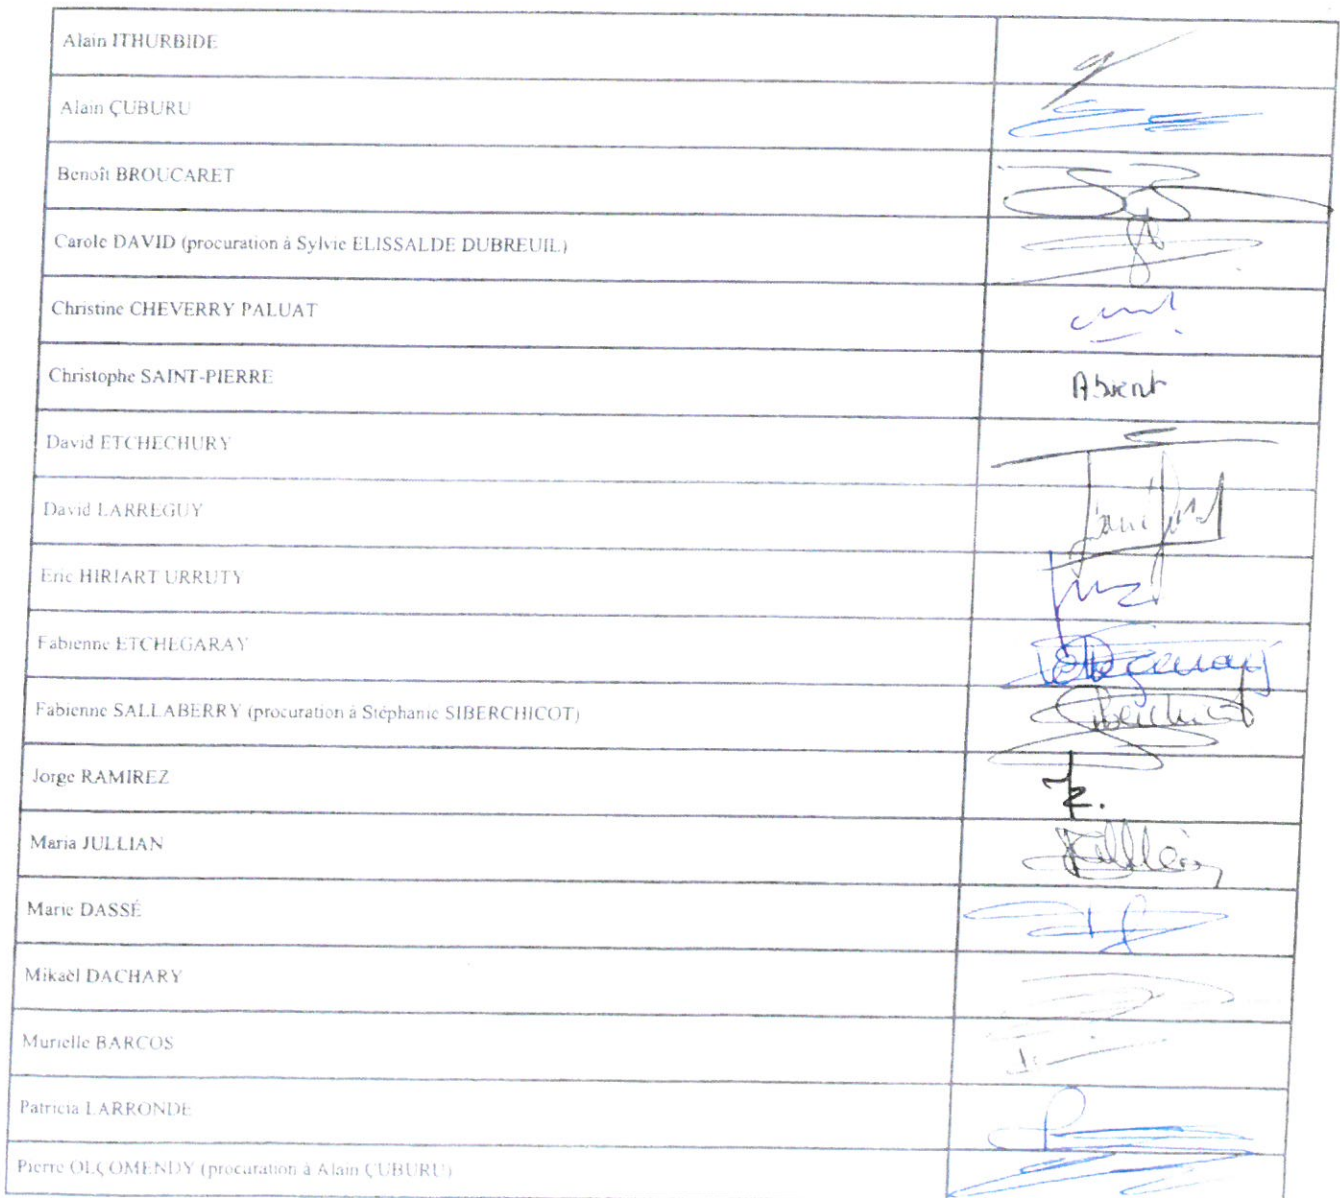 Alain ITHURBIDE
Alain ÇUBURU
Benoît BROUCARET
Carole DAVID (procuration à Sylvie ELISSALDE DUBREUIL)
Christine CHEVERRY PALUAT
Christophe SAINT-PIERRE Absent
David ETCHECHURY
David LARREGUY
Eric HIRIART URRUTY
Fabienne ETCHEGARAY
Fabienne SALLABERRY (procuration à Stéphanie SIBERCHICOT)
Jorge RAMIREZ
Maria JULLIAN
Marie DASSÉ
Mikaël DACHARY
Murielle BARCOS
Patricia LARRONDE
Pierre OLÇOMENDY (procuration à Alain ÇUBURU)